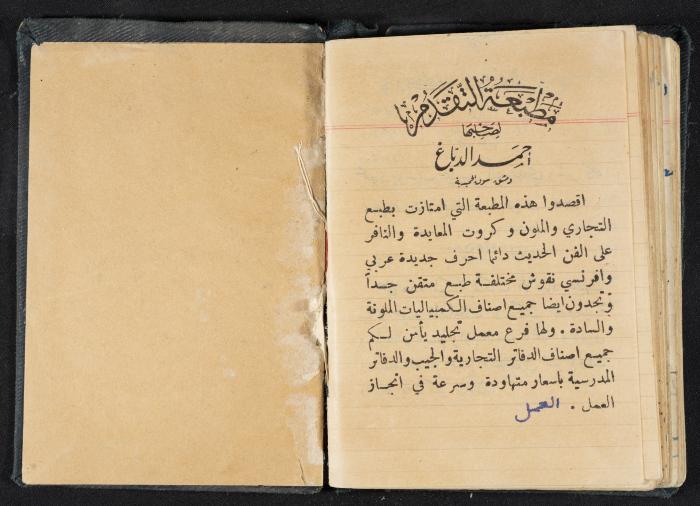 مطبعة التقدم
لصاحبها
احمد الدباغ
دمشق سوق
اقصدوا هذه المطبعة التي امتازت بطبع
التجاري والملون وكروت المعايدة والنافر
على الفن الحديث دائما احرف جديدة عربي
وافرنسي نقوش مختلفة طبع متقن جداً
وتجدون ايضا جميع اصناف الكمبياليات الملونة
والسادة . ولها فرع معمل تجليد يأمن لكم
جميع اصناف الدفاتر التجارية والجيب والدفاتر
المدرسية باسعار متهاودة وسرعة في انجاز
العمل . العمل